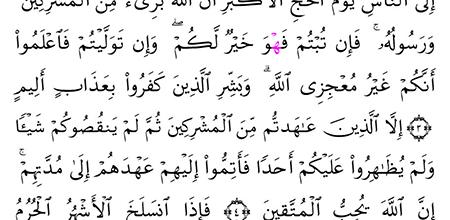 إِلَى ٱلنَّاسِ يَوْمَ ٱلْحَجِّ ٱلْأَكْبَرِ أَنَّ ٱللَّهَ بَرِىٓءٌ مِّنَ ٱلْمُشْرِكِينَ
وَرَسُولُهُۥ ۚ فَإِن تُبْتُمْ فَهُوَ خَيْرٌ لَّكُمْ ۖ وَإِن تَوَلَّيْتُمْ فَٱعْلَمُوٓا۟
أَنَّكُمْ غَيْرُ مُعْجِزِى ٱللَّهِ ۗ وَبَشِّرِ ٱلَّذِينَ كَفَرُوا۟ بِعَذَابٍ أَلِيمٍ
﴿٣﴾ إِلَّا ٱلَّذِينَ عَـٰهَدتُّم مِّنَ ٱلْمُشْرِكِينَ ثُمَّ لَمْ يَنقُصُوكُمْ شَيْـًٔا
وَلَمْ يُظَـٰهِرُوا۟ عَلَيْكُمْ أَحَدًا فَأَتِمُّوٓا۟ إِلَيْهِمْ عَهْدَهُمْ إِلَىٰ مُدَّتِهِمْ ۚ
إِنَّ ٱللَّهَ يُحِبُّ ٱلْمُتَّقِينَ ﴿٤﴾ فَإِذَا ٱنسَلَخَ ٱلْأَشْهُرُ ٱلْحُرُمُ